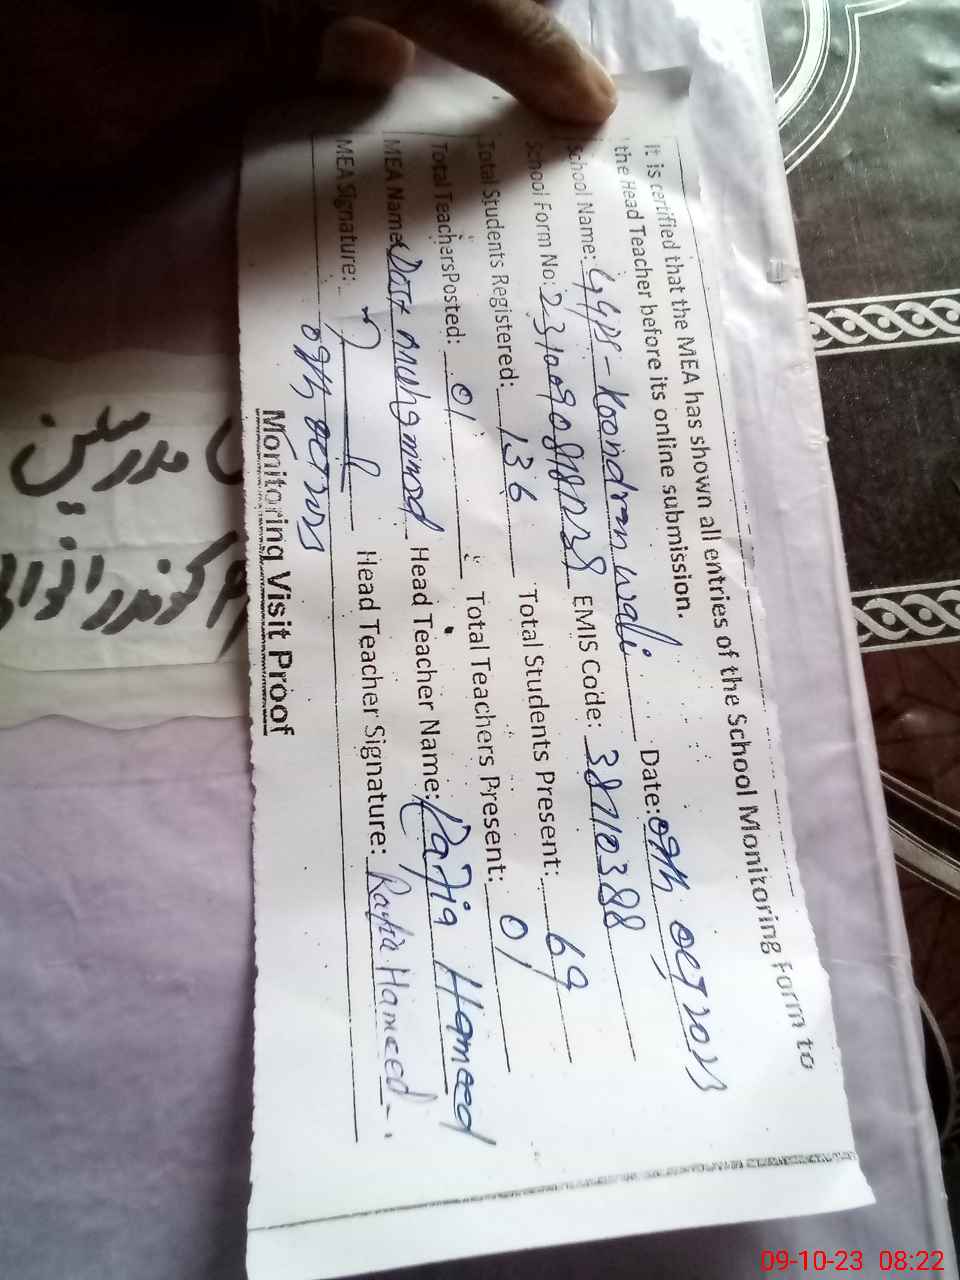 It is certified that the MEA has shown all entries of the School Monitoring Form to
the Head Teacher before its online submission.
School Name: GGPS - Koondran wali Date: 09th oct 2023
School Form No: EMIS Code: 38710388
Total Students Registered: 136 Total Students Present: 69
Total TeachersPosted: 01 Total Teachers Present: 01
MEA Name: Dost Muhammad Head Teacher Name: Razia Hameed
MEA Signature: Head Teacher Signature: Razia Hameed
09th oct 2023
Monitoring Visit Proof
مدرسین
09-10-23 08:22